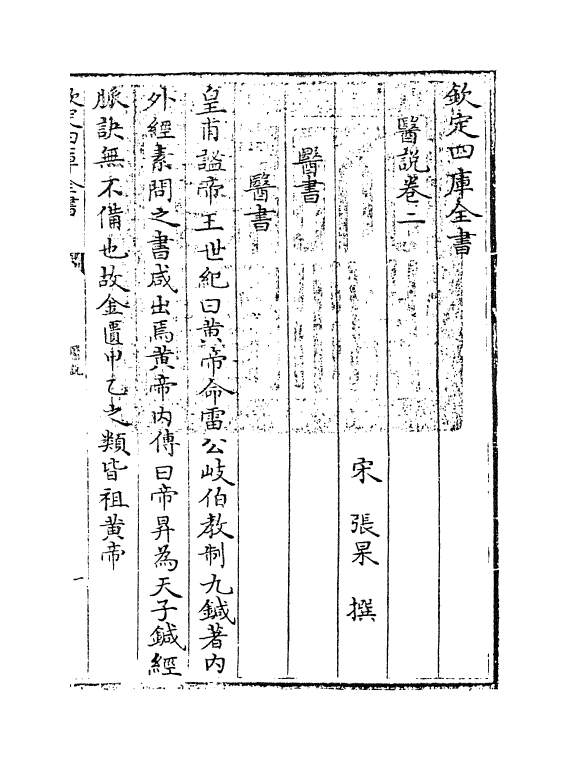 欽定四庫全書
醫說卷二
宋 張杲 撰
醫書
醫書
皇甫謐帝王世紀曰黄帝命雷公岐伯教制九鍼著内
外經素問之書咸出焉黄帝内傳曰帝昇為天子鍼經
脈訣無不備也故金匱甲乙之類皆祖黄帝
欽定四庫全書
醫說
一